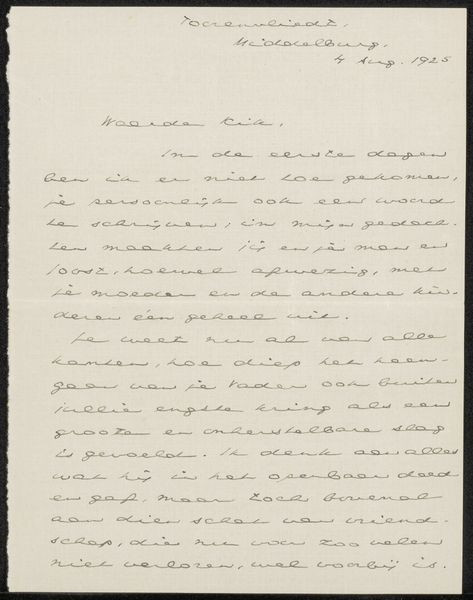 Toorenvliedt.
Middelburg.
4 Aug. 1925
Waarde Kik,
In de eerste dagen
ben ik er niet toe gekomen,
je persoonlijk ook een woord
te schrijven; in mijn gedach-
ten maakten jij en je man en
Joost, hoewel afwezig, met
je moeder en de andere kin-
deren één geheel uit.
Je weet nu al van alle
kanten, hoe diep het heen-
gaan van je Vader ook buiten
jullie engste kring als een
groote en onherstelbare slag
is gevoeld. Ik denk aan alles
wat hij in het openbaar deed
en gaf, maar toch bovenal
aan dien schat van vriend-
schap, die nu voor zoo velen
niet verloren, wel voorbij is.